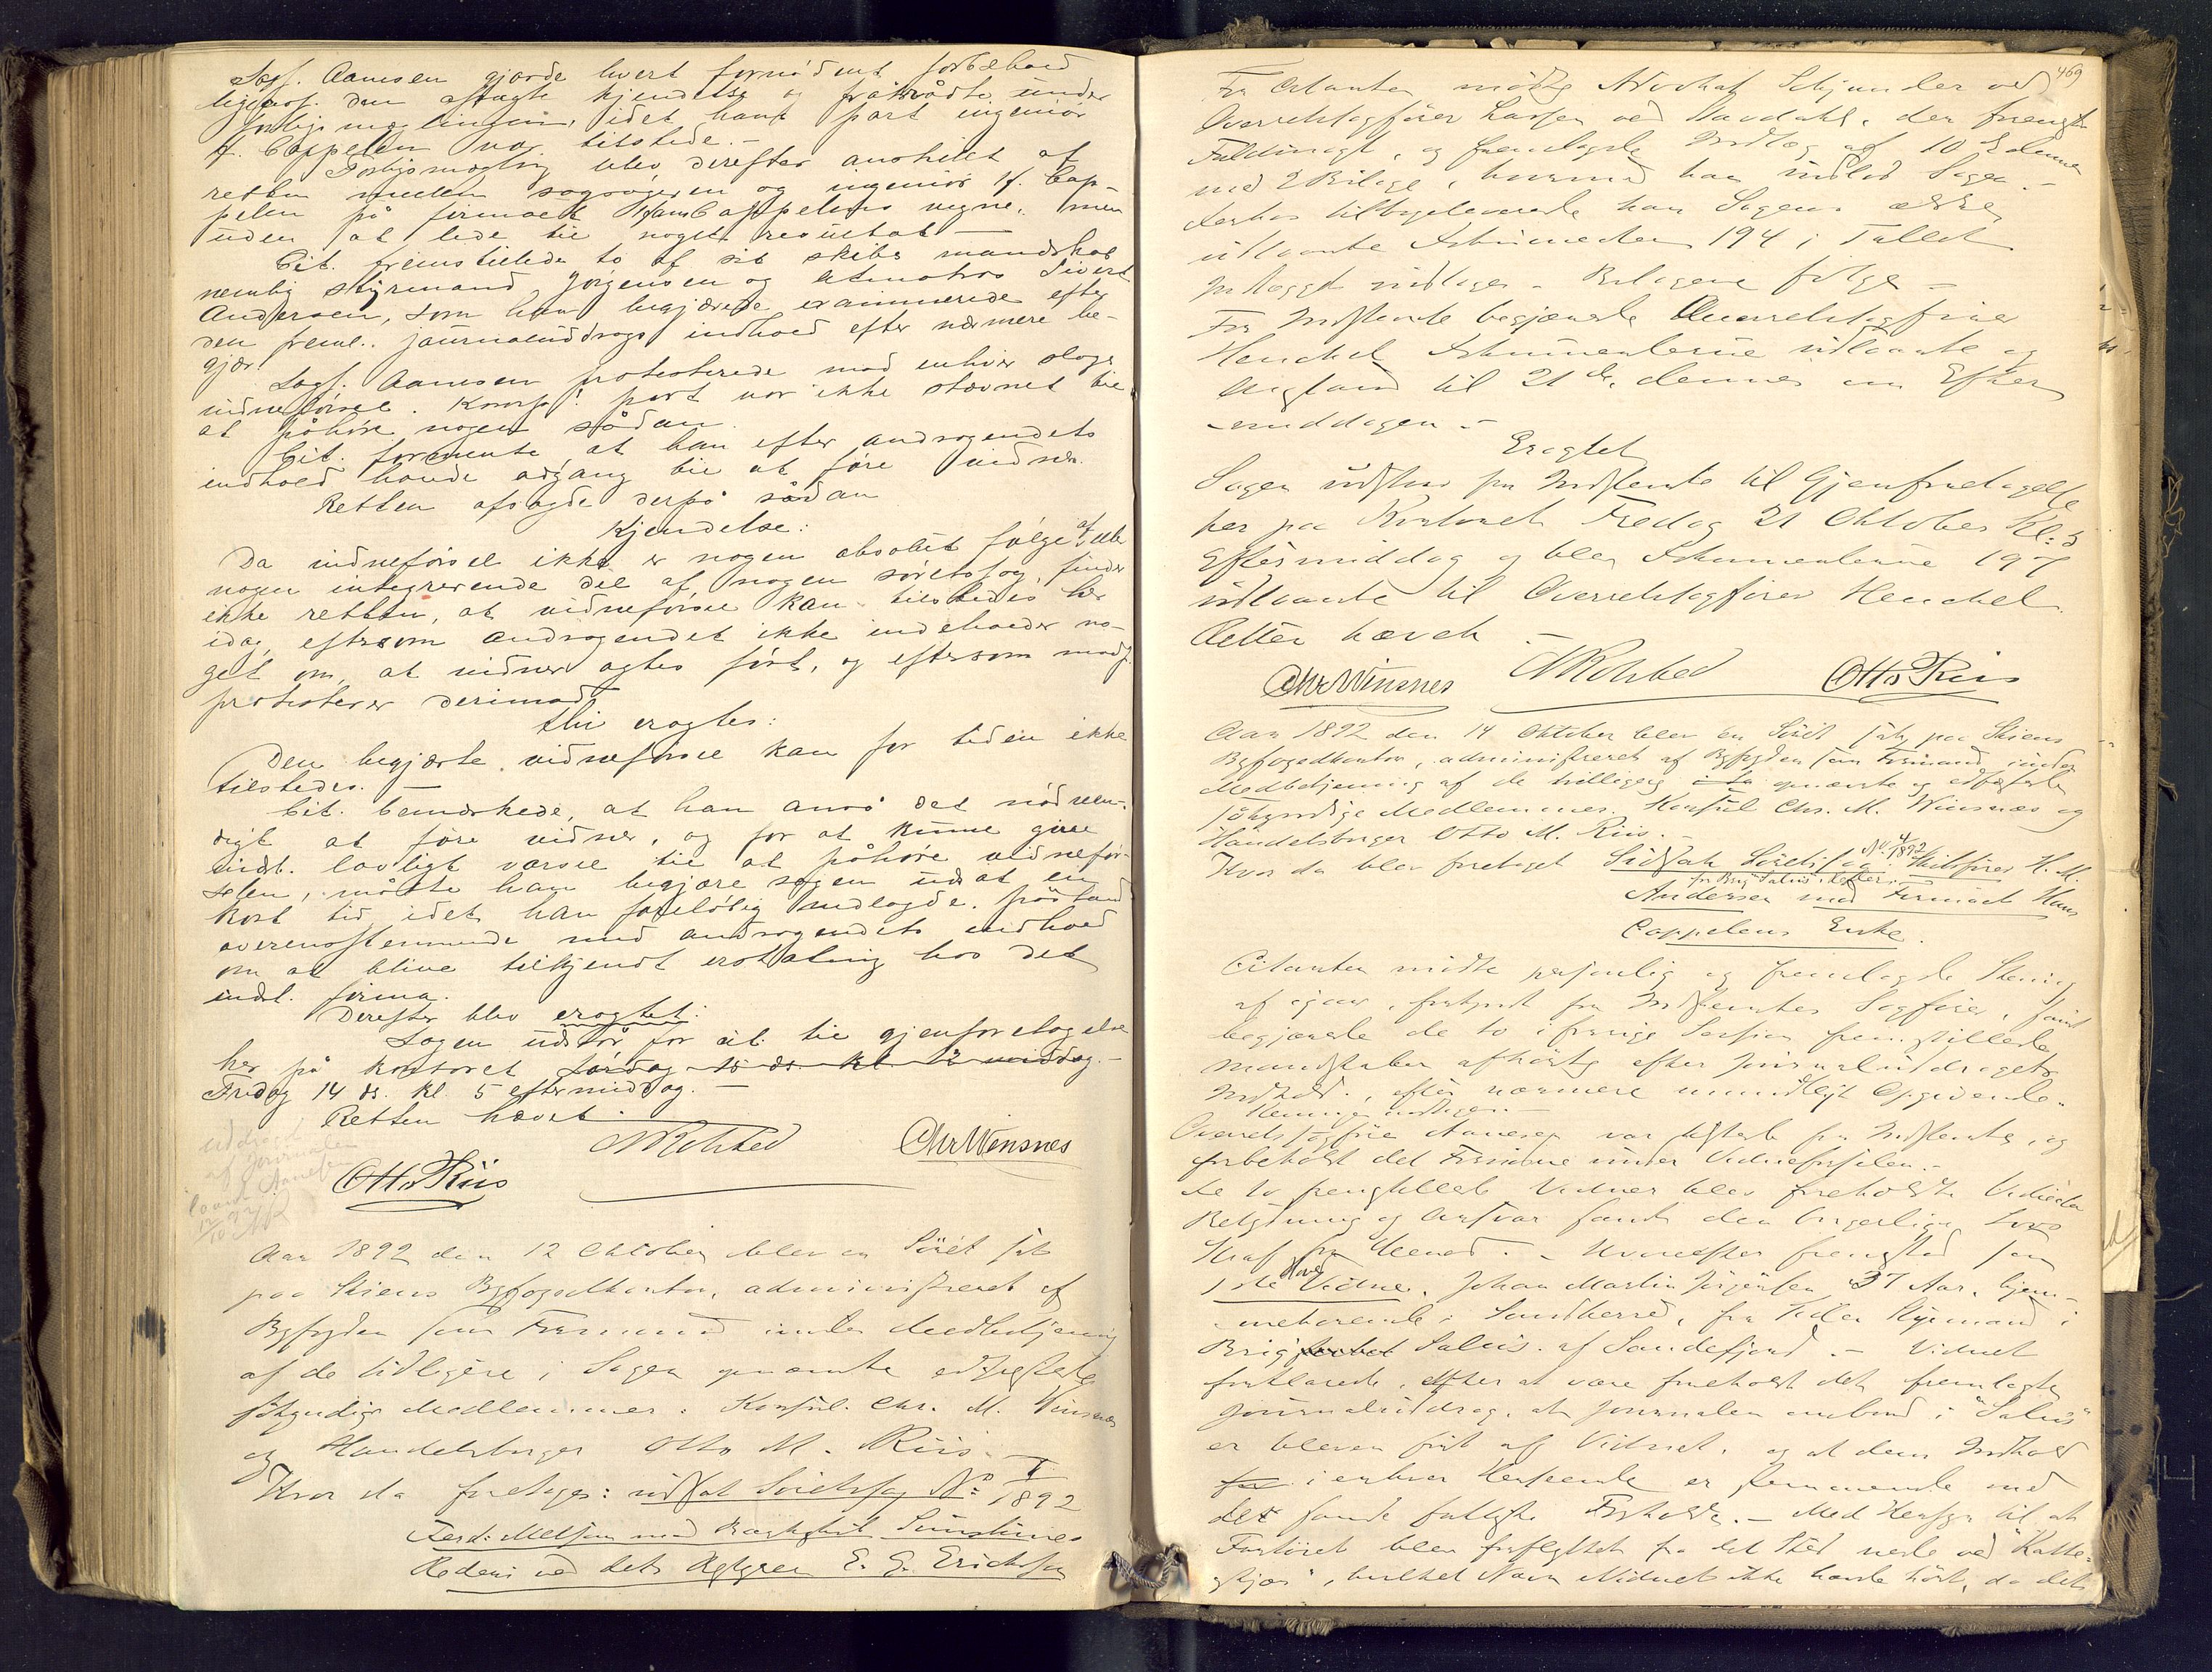 Sagf. Aanesen gjorde hvert fornødent forbehold
ligeoverf. den afsagte kjendelse og fratrådte under
forligsmæglingen, idet hans part ingeniør
H. Cappelen var tilstede.-
Forligsmægling blev derefter anstillet af
retten mellem sagsøgeren og ingeniør H. Cap-
pelen på firmaet Hans Cappelens vegne, men
uden at lede til noget resultat -
Cit. fremstillede to af sit skibs mandskab
nemlig styrmand Jørgensen og letmatros Sivert
Andersen, som han begjærede examinerede efter
den freml. journaluddrags indhold efter nærmere be-
gjær.
Sagf. Aanesen protesterede mod enhver slags
vidneførsel. Konsp. part var ikke stævnet til
at påhøre nogen sådan.
Cit. formente, at han efter andragendets
indhold havde adgang til at føre vidner.
Retten afsagde derpå sådan
Kjendelse:
Da vidneførsel ikke er nogen absolut følge af eller
nogen integrerende del af nogen søretssag, finder
ikke retten, at vidneførsel kan tilstedes her
idag, eftersom andragendet ikke indeholder no-
get om, at vidner agtes ført, og eftersom modp.
protesterer derimod
thi eragtes:
Den begjærte vidneførsel kan for tiden ikke
tilstedes. -
Cit. bemærkede, at han anså det nødven-
digt at føre vidner, og for at kunne give
indst. lovligt varsel til at påhøre vidnefør-
selen, måtte han begjære sagen udsat en
kort tid, idet han foreløbig nedlagde påstand
overensstemmende med andragendets indhold
om at blive tilkjendt erstatning hos det
indst. firma.
Derefter blev eragtet:
Sagen udstår for cit. til gjenforetagelse
her på kontoret Lørdag 15 ds. kl. 12 middag.-
Fredag 14 ds. kl. 5 eftermiddag. -
Retten hævet.
N Rolsted Chr Winsnes
Otto Riis
uddrag
af Journalen
Aanesen
Aar 1892 den 12 Oktober blev en Søret sat
paa Skiens Byfogedkontor, administreret af
Byfogden som Formand under Medbetjening
af de tidligere i Sagen opnævnte edfæstede
søkyndige Medlemmer: Konsul Chr. M. Winsnes
og Handelsborger Otto M. Riis. -
Hvor da foretoges: udsat Søretssag No I/1892
med Sunshines
Rederi ved dets E. G. Erichsen
469
For Citanten mødte Advokat Schjander ved
Overretssagfører Larsen ved Navdahl, der fremlagde
Fuldmagt, og fremlagde Indlæg af 10 de dennes
med 2 Bilage, hvormed han indlod Sagen.-
Derhos tilbageleverede han Sagens ældre
udlaante Dokumenter 194 i Tallet
Indlægget indtages - Bilagene følge -
For Indstevnte begjærede Overretssagfører
Henckel Dokumenterne udlaante og
Anstand til 21 de dennes om Efter
-middagen. -
Eragtet
Sagen udstaar for Indstevnte til Gjenforetagelse
her paa Kontoret Fredag 21 Oktober Kl. 5
Eftermiddag og blev Dokumenterne 197
udlaante til Overretssagfører Henckel.
Retten hævet. -
Chr Winsnes N Rolsted Otto Riis
Aar 1892 den 14 Oktober blev en Søret sat paa Skiens
Byfogedkontor, administreret af Byfogden som Formand under
Medbetjening af de tidligere opnævnte og edfæstede
søkyndige Medlemmer Konsul Chr. M. Winsnes og
Handelsborger Otto M. Riis. -
Hvor da blev foretaget Udsat Søretssag No 4/1892 Skibsfører H. M.
for Brig "Salus"
Andersen mod Firmaet Hans
Cappelens Enke.
Citanten mødte personlig og fremlagde Stevning
af igaar, forkyndt for Indstevntes Sagfører, samt
begjærede de to i forrige Session fremstillede
Mandskaber afhørte efter Journaluddragets
Indhold, efter nærmere mundtligt Opgivende.
Stevningen indtages. -
Overretssagfører Aanesen var tilstede for Indstevnte, og
forbeholdt det Fornødne under Vidneførselen.-
De to fremstillede Vidner blev foreholdt Vidneds
Betydning og Ansvar samt den borgerlige Lovs
Straf for Mened. - Hvorefter fremstod som
1ste Vidne, Johan Martin Jørgensen 37 Aar, hjem-
-mehørende i Sandherred, for Tiden Styrmand i
Brigskibet Salus af Sandefjord. - Vidnet
forklarede, efter at være foreholdt det fremlagte
Journaluddrag, at Journalen ombord i "Salus"
er bleven ført af Vidnet, og at dens Indhold
i enhver Henseende er stemmende med
det sande faktiske Forhold. - Med Hensyn til at
Fartøiet blev forflyttet fra det Sted nede ved "Katte-
skjær", hvilket Navn Vidnet ikke havde hørt, da det